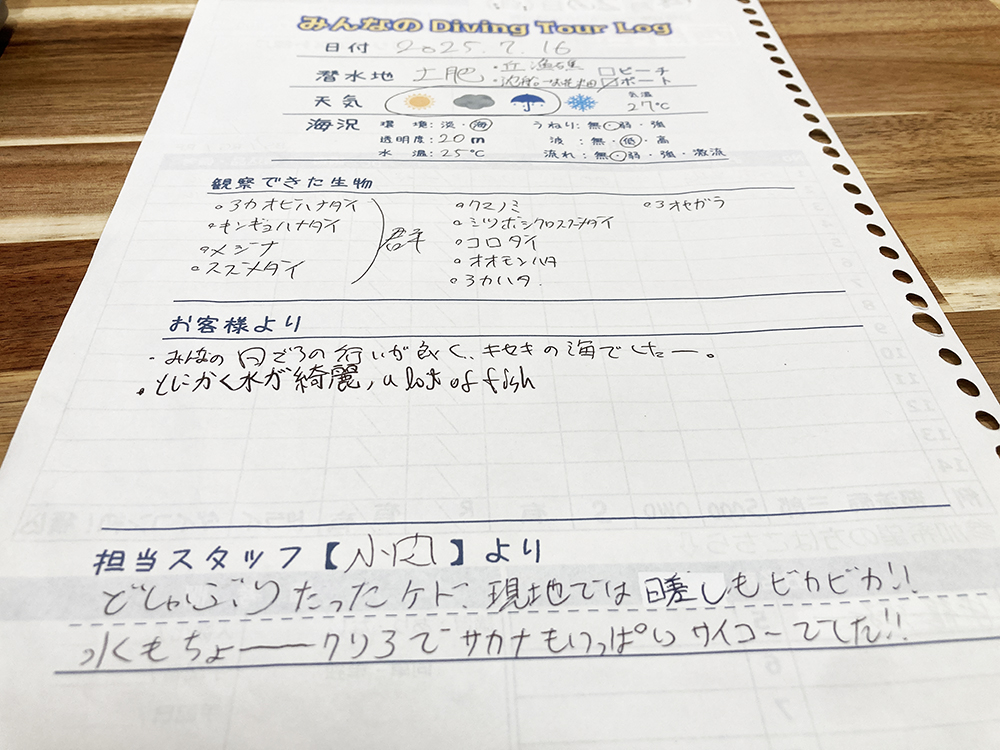 みんなの Diving Tour Log
日付 2025.7.16
潜水地 土肥 ・丘漁礁 □ビーチ
・沈船〜焼畑 ☑ボート
天気 気温 27℃
海況 環境:淡・海 うねり:無・弱・強
透明度:20m 波:無・低・高
水温:25℃ 流れ:無・弱・強・激流
観察できた生物
○アカオビハナタイ ○クマノミ ○アオヤガラ
○キンギョハナダイ ○ミツボシクロスズメダイ
○メジナ 群 ○コロダイ
○スズメダイ ○オオモンハタ
○アカハタ
お客様より
・みんなの日ごろの行いが良く、キセキの海でしたー。
・とにかく水が綺麗, a lot of fish
担当スタッフ【小内】より
どしゃぶりだったケド、現地では日差しもピカピカ!!
水もちょーークリアでサカナもいっぱいサイコーでした!!